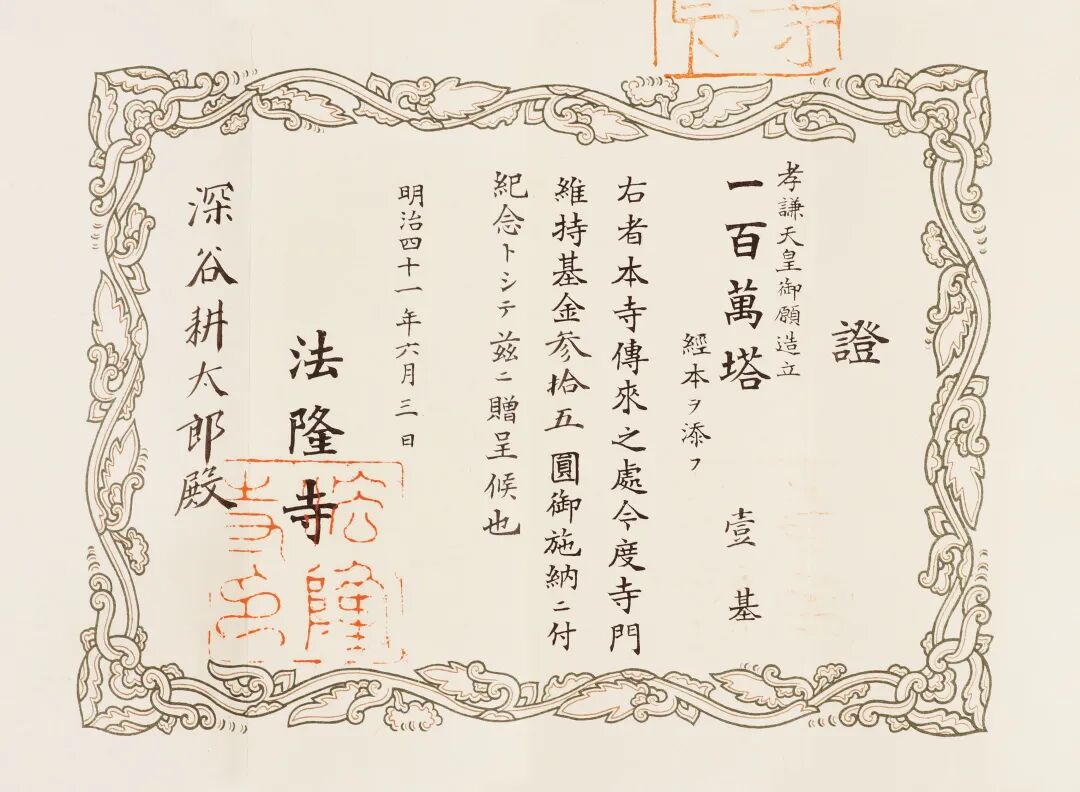 證
孝謙天皇御願造立
一百萬塔 壹基
經本ヲ添フ
右者本寺傳來之處今度寺門
維持基金参拾五圓御施納ニ付
紀念トシテ玆ニ贈呈候也
明治四十一年六月三日
法隆寺
深谷耕太郎殿
法隆
寺印